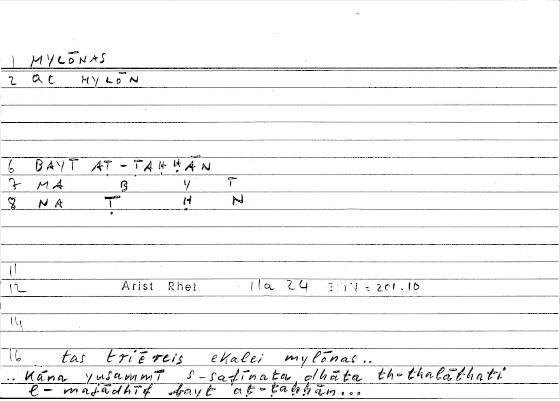 1 MYLŌNAS
2 QC MYLŌN
6 BAYT AṬ-ṬAḤḤĀN
7 MA B Y T
8 NA Ṭ Ḥ N
11
12 Arist Rhet 11a 24 = 201.10
14
16 tas triēreis ekalei mylōnas..
.. kāna yusammī s-safīnata dhāta th-thalāthati
l-majādhīf bayt aṭ-ṭaḥḥān...